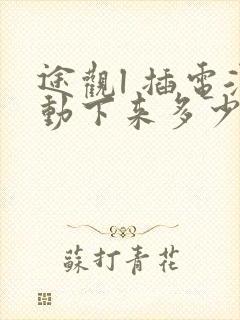 途觀l插電混
動下來多少
蘇打青花